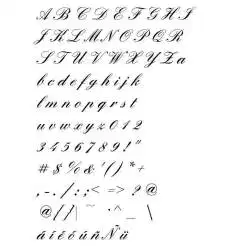 A B C D E F G H I
J K L M N O P Q R
S T U V W X Y Z a
b c d e f g h i j k
l m n o p q r s t
u v w x y z 0 1 2
3 4 5 6 7 8 9 ! "
# $ % & ' ( ) * +
, - . / : ; < = > ? @
@ [ ] | ~ · ^ _ \
á í é ó ú ñ Ñ ü